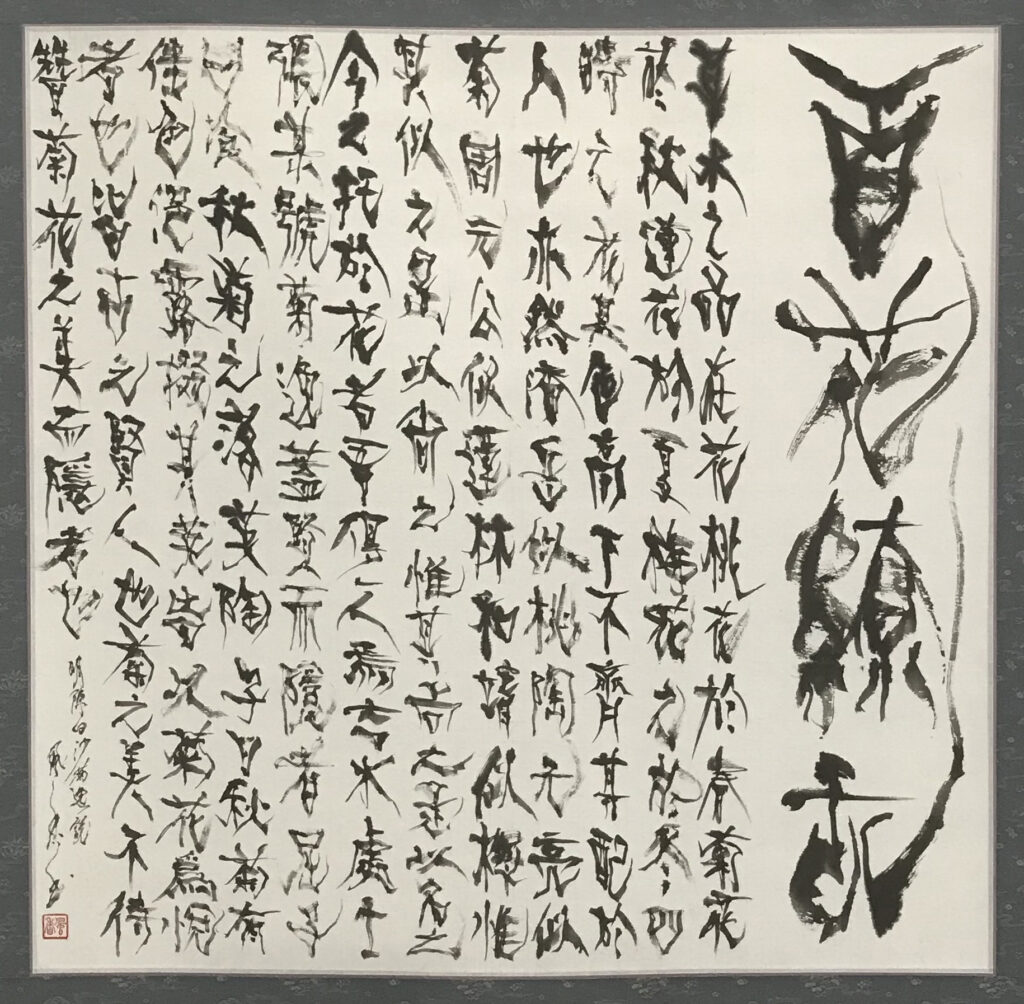 百花
草木之品在花桃花於春菊花
於秋蓮花於夏梅花於冬四
時之花臭色高下不齊其配於
人也亦然潘岳似桃陶元亮似
菊周元公似蓮林和靖似梅惟
其似之是以尚之惟其尚之是以名之
今之托於花者吾得一人焉吉水處士
張某號菊逸蓋賢而隱者屈子
曰飡秋菊之落英陶子曰秋菊有
佳色浥露掇其英菊花為悅
者也皆古之賢人也菊之美不待
贊菊花之美而隱者也
明陳白沙菊逸說